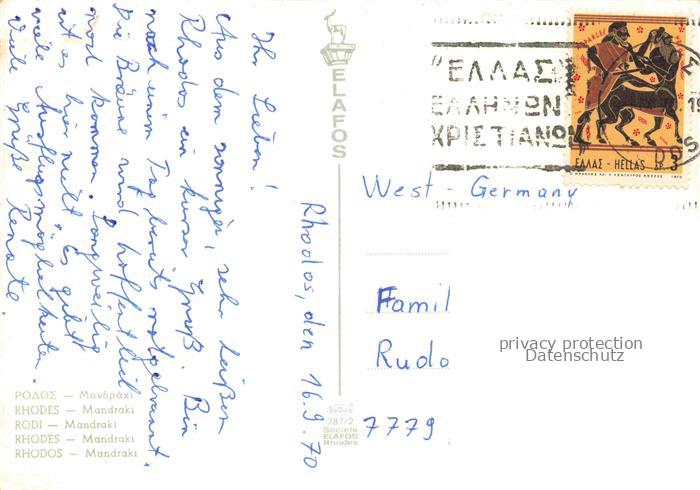 Rhodos, den 16.9.70
Ihr Lieben!
Aus dem sonnigen, sehr heißen
Rhodos ein kurzer Gruß. Bin
nach einem Tag bereits rotgebrannt.
Die Bräune wird hoffentlich
noch kommen. Langweilig
ist es hier nicht, es gibt
viele Ausflugsmöglichkeiten.
Viele Grüße Renate.
ΡΟΔΟΣ — Μανδράκι
RHODES — Mandraki
RODI — Mandraki
RHODES — Mandraki
RHODOS — Mandraki
ELAFOS
787/2
Société
ELAFOS
Rhodes
"ΕΛΛΑΣ
ΕΛΛΗΝΩΝ
ΧΡΙΣΤΙΑΝΩ
ΕΛΛΑΣ - HELLAS ΔΡ 3
West-Germany
Famil
Rudo
7779
privacy protection
Datenschutz